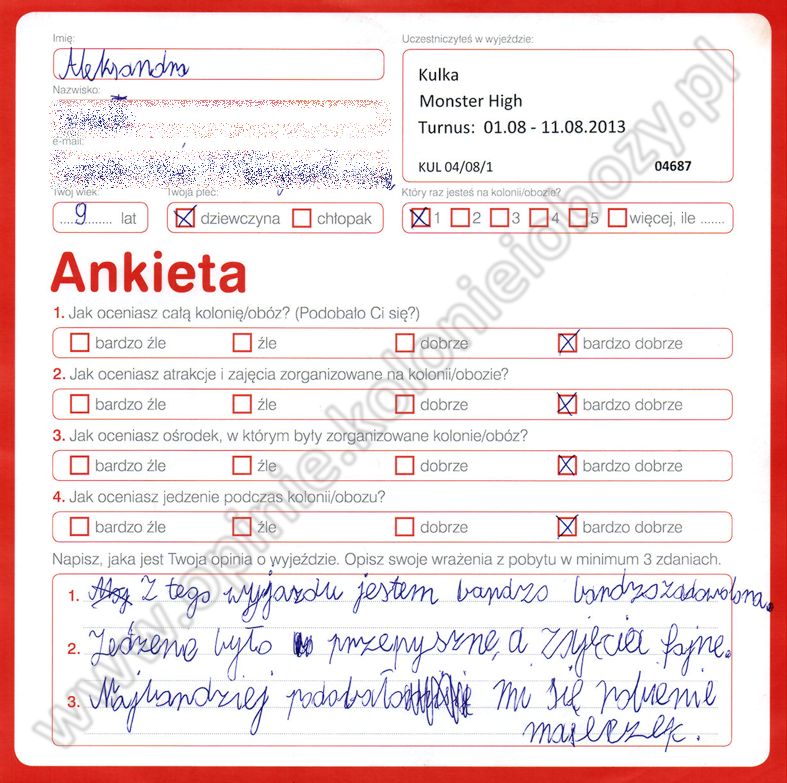 Imię:
Uczestniczyłeś w wyjeździe:
Aleksandra
Kulka
Nazwisko:
Monster High
Turnus: 01.08 - 11.08.2013
e-mail:
KUL 04/08/1 04687
Twój wiek: Twoja płeć: Który raz jesteś na kolonii/obozie?
....9........ lat dziewczyna chłopak 1 2 3 4 5 więcej, ile .......
Ankieta
1. Jak oceniasz całą kolonię/obóz? (Podobało Ci się?)
bardzo źle źle dobrze bardzo dobrze
2. Jak oceniasz atrakcje i zajęcia zorganizowane na kolonii/obozie?
bardzo źle źle dobrze bardzo dobrze
3. Jak oceniasz ośrodek, w którym były zorganizowane kolonie/obóz?
bardzo źle źle dobrze bardzo dobrze
4. Jak oceniasz jedzenie podczas kolonii/obozu?
bardzo źle źle dobrze bardzo dobrze
Napisz, jaka jest Twoja opinia o wyjeździe. Opisz swoje wrażenia z pobytu w minimum 3 zdaniach.
1. Z tego wyjazdu jestem bardzo bardzo zadowolona.
2. Jedzene było przepyszne, a zajęcia fajne.
3. Najbardziej podobało mi się robienie
maseczek.
www.opinie.kolonieiobozy.pl